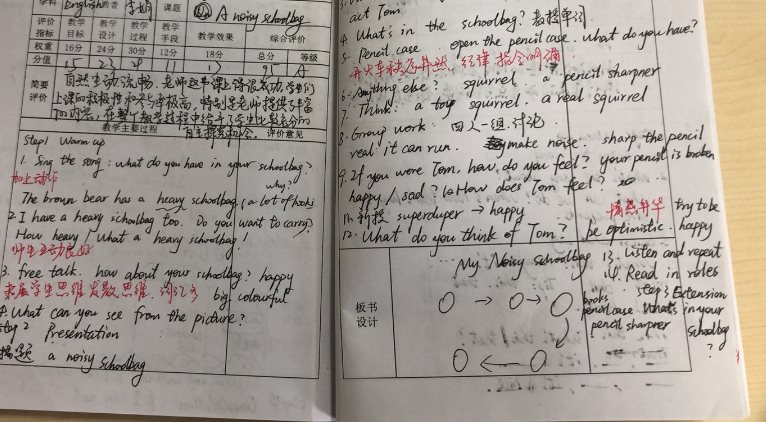 学科 English 教者 李娟 课题 A noisy schoolbag
评价指标 教学目标 教学设计 教学过程 教学手段 教学效果 综合评价
权重 16分 24分 30分 12分 18分 总分 等级
分值 15 23 11 95 A
简要评价 自然生动流畅,老师这节课上得很成功,学生们
上课的积极性和参与率极高,特别是老师提供了丰富
的内容,在整个教学过程中给予了学生比较充分的
自主探究机会。
教学主要过程 评价意见
Step1 Warm up
1. Sing the song: what do you have in your schoolbag?
加上动作
why?
The brown bear has a heavy schoolbag. (a lot of books)
2. I have a heavy schoolbag too. Do you want to carry?
How heavy! What a heavy schoolbag!
师生互动良好
3. free talk. how about your schoolbag? happy
big colourful
发散思维
4. What can you see from the picture?
Step 2 Presentation
揭题 a noisy schoolbag
act Tom.
4. What's in the schoolbag? 教授单词
5. Pencil case open the pencil case. What do you have?
开火车秩序井然, 纪律指令明确
6. Anything else? squirrel a pencil sharpner
7. Think: a toy squirrel. a real squirrel
8. Group work: 四人一组,讨论.
real: it can run. make noise. sharp the pencil
9. If you were Tom, how do you feel? your pencil is broken
happy / sad? How does Tom feel?
新授 superduper → happy
情感升华 try to be
12. What do you think of Tom? be optimistic. happy
板书设计
My Noisy schoolbag
books
pencil case
pencil sharpner
13. Listen and repeat
14. Read in roles
step3 Extension
What's in your
schoolbag
?